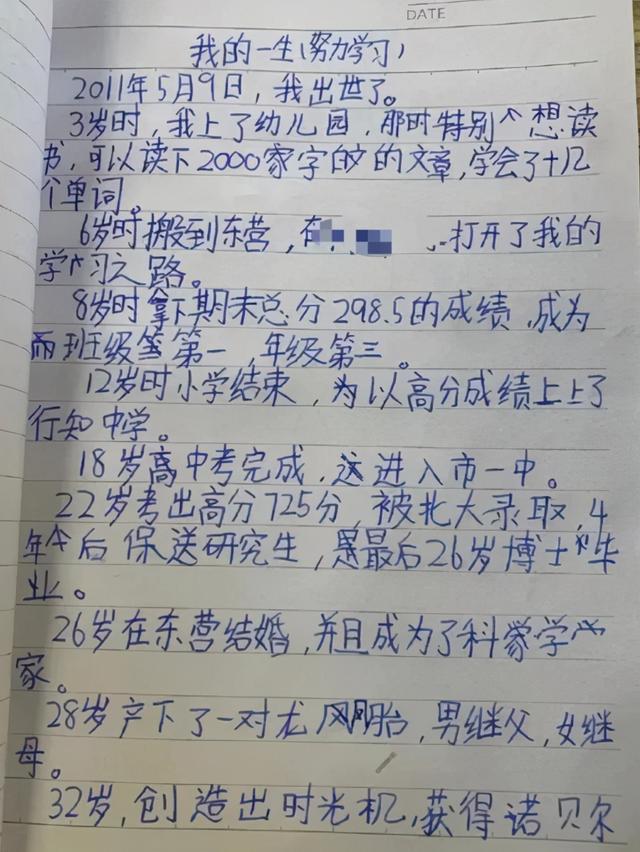 DATE
我的一生(努力学习)
2011年5月9日，我出世了。
3岁时，我上了幼儿园，那时特别想读
书，可以读下2000家字的的文章,学会了十几
个单词。
6岁时搬到东营，在 打开了我的
学习之路。
8岁时拿下期末总分298.5的成绩,成为
班级第一，年级第三。
12岁时小学结束，为以高分成绩上上了
行知中学。
18岁高中考完成,进入市一中。
22岁考出高分725分，被北大录取，4
年后保送研究生，最后26岁博士毕
业。
26岁在东营结婚，并且成为了科家学
家。
28岁产下了一对龙凤胎，男继父，女继
母。
32岁,创造出时光机,获得诺贝尔